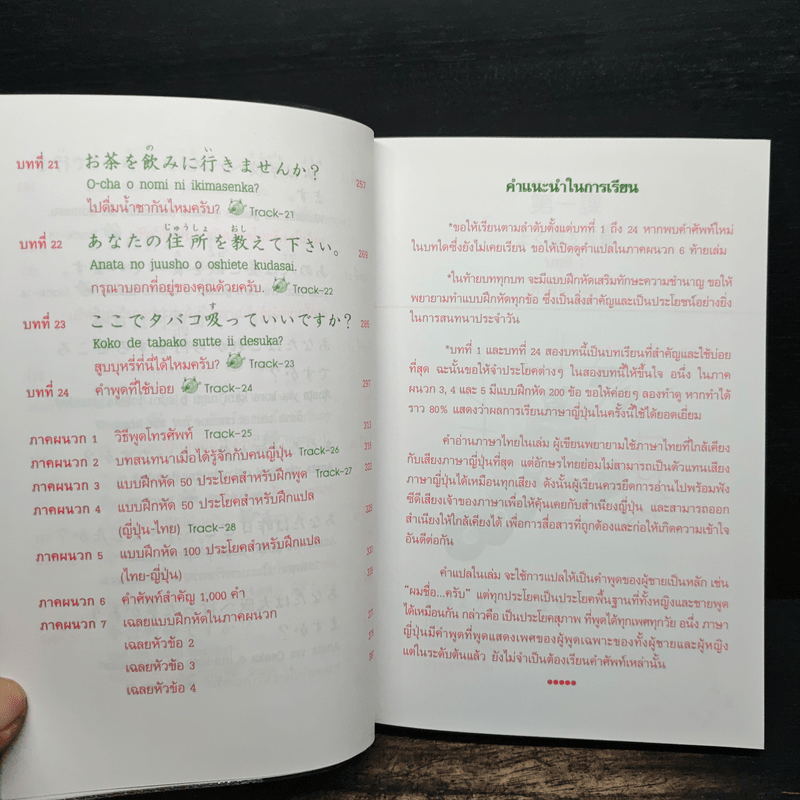 の い
บทที่ 21 お茶を飲みに行きませんか？
O-cha o nomi ni ikimasenka? 257
ไปดื่มน้ำชากันไหมครับ? Track-21
じゅうしょ おし
บทที่ 22 あなたの住所を教えて下さい。 269
Anata no juusho o oshiete kudasai.
กรุณาบอกที่อยู่ของคุณด้วยครับ. Track-22
す
บทที่ 23 ここでタバコ吸っていいですか？ 285
Koko de tabako sutte ii desuka?
สูบบุหรี่ที่นี่ได้ไหมครับ? Track-23
บทที่ 24 คำพูดที่ใช้บ่อย Track-24 297
ภาคผนวก 1 วิธีพูดโทรศัพท์ Track-25
ภาคผนวก 2 บทสนทนาเมื่อได้รู้จักกับคนญี่ปุ่น Track-26
ภาคผนวก 3 แบบฝึกหัด 50 ประโยคสำหรับฝึกพูด Track-27
ภาคผนวก 4 แบบฝึกหัด 50 ประโยคสำหรับฝึกแปล
(ญี่ปุ่น-ไทย) Track-28
ภาคผนวก 5 แบบฝึกหัด 100 ประโยคสำหรับฝึกแปล
(ไทย-ญี่ปุ่น)
ภาคผนวก 6 คำศัพท์สำคัญ 1,000 คำ
ภาคผนวก 7 เฉลยแบบฝึกหัดในภาคผนวก
เฉลยหัวข้อ 2
เฉลยหัวข้อ 3
เฉลยหัวข้อ 4
คำแนะนำในการเรียน
*ขอให้เรียนตามลำดับตั้งแต่บทที่ 1 ถึง 24 หากพบคำศัพท์ใหม่
ในบทใดซึ่งยังไม่เคยเรียน ขอให้เปิดดูคำแปลในภาคผนวก 6 ท้ายเล่ม
*ในท้ายบททุกบท จะมีแบบฝึกหัดเสริมทักษะความชำนาญ ขอให้
พยายามทำแบบฝึกหัดทุกข้อ ซึ่งเป็นสิ่งสำคัญและเป็นประโยชน์อย่างยิ่ง
ในการสนทนาประจำวัน
*บทที่ 1 และบทที่ 24 สองบทนี้เป็นบทเรียนที่สำคัญและใช้บ่อย
ที่สุด ฉะนั้นขอให้จำประโยคต่างๆ ในสองบทนี้ให้ขึ้นใจ อนึ่ง ในภาค
ผนวก 3, 4 และ 5 มีแบบฝึกหัด 200 ข้อ ขอให้ค่อยๆ ลองทำดู หากทำได้
ราว 80% แสดงว่าผลการเรียนภาษาญี่ปุ่นในครั้งนี้ใช้ได้ยอดเยี่ยม
คำอ่านภาษาไทยในเล่ม ผู้เขียนพยายามใช้ภาษาไทยที่ใกล้เคียง
กับเสียงภาษาญี่ปุ่นที่สุด แต่อักษรไทยย่อมไม่สามารถเป็นตัวแทนเสียง
ภาษาญี่ปุ่นได้เหมือนทุกเสียง ดังนั้นผู้เรียนควรยึดการอ่านไปพร้อมฟัง
ซีดีเสียงเจ้าของภาษาเพื่อให้คุ้นเคยกับสำเนียงญี่ปุ่น และสามารถออก
สำเนียงให้ใกล้เคียงได้ เพื่อการสื่อสารที่ถูกต้องและก่อให้เกิดความเข้าใจ
อันดีต่อกัน
คำแปลในเล่ม จะใช้การแปลให้เป็นคำพูดของผู้ชายเป็นหลัก เช่น
"ผมชื่อ...ครับ" แต่ทุกประโยคเป็นประโยคพื้นฐานที่ทั้งหญิงและชายพูด
ได้เหมือนกัน กล่าวคือ เป็นประโยคสุภาพ ที่พูดได้ทุกเพศทุกวัย อนึ่ง ภาษา
ญี่ปุ่นมีคำพูดที่พูดแสดงเพศของผู้พูดเฉพาะของทั้งผู้ชายและผู้หญิง
แต่ในระดับต้นแล้ว ยังไม่จำเป็นต้องเรียนคำศัพท์เหล่านั้น